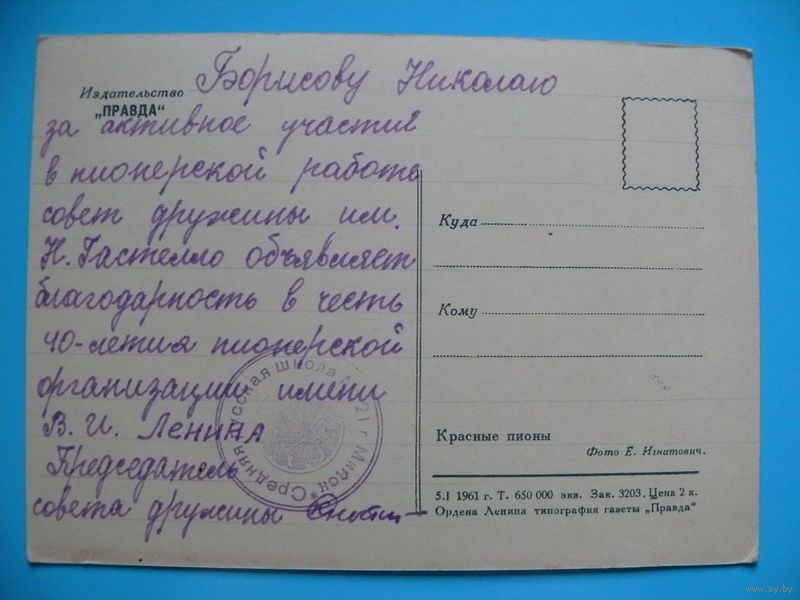 Издательство
„ПРАВДА“
Борисову Николаю
за активное участие
в пионерской работе
совет дружины им.
Н. Гастелло объявляет
благодарность в честь
40-летия пионерской
организации имени
В. И. Ленина
Председатель
совета дружины
Средняя русская школа № 21 г Минск *
Куда
Кому
Красные пионы
Фото Е. Игнатович.
5.I 1961 г. Т. 650 000 экз. Зак. 3203. Цена 2 к.
Ордена Ленина типография газеты „Правда“
www.ay.by